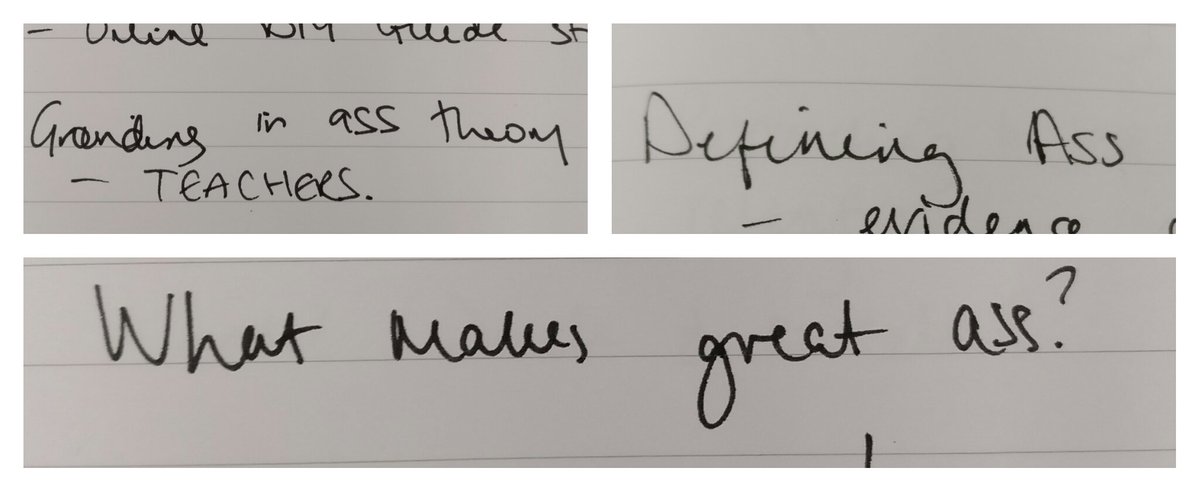 - Online DIY Guide st
Grounding in ass theory
- TEACHERS.
Defining Ass
- evidence
What makes great ass?